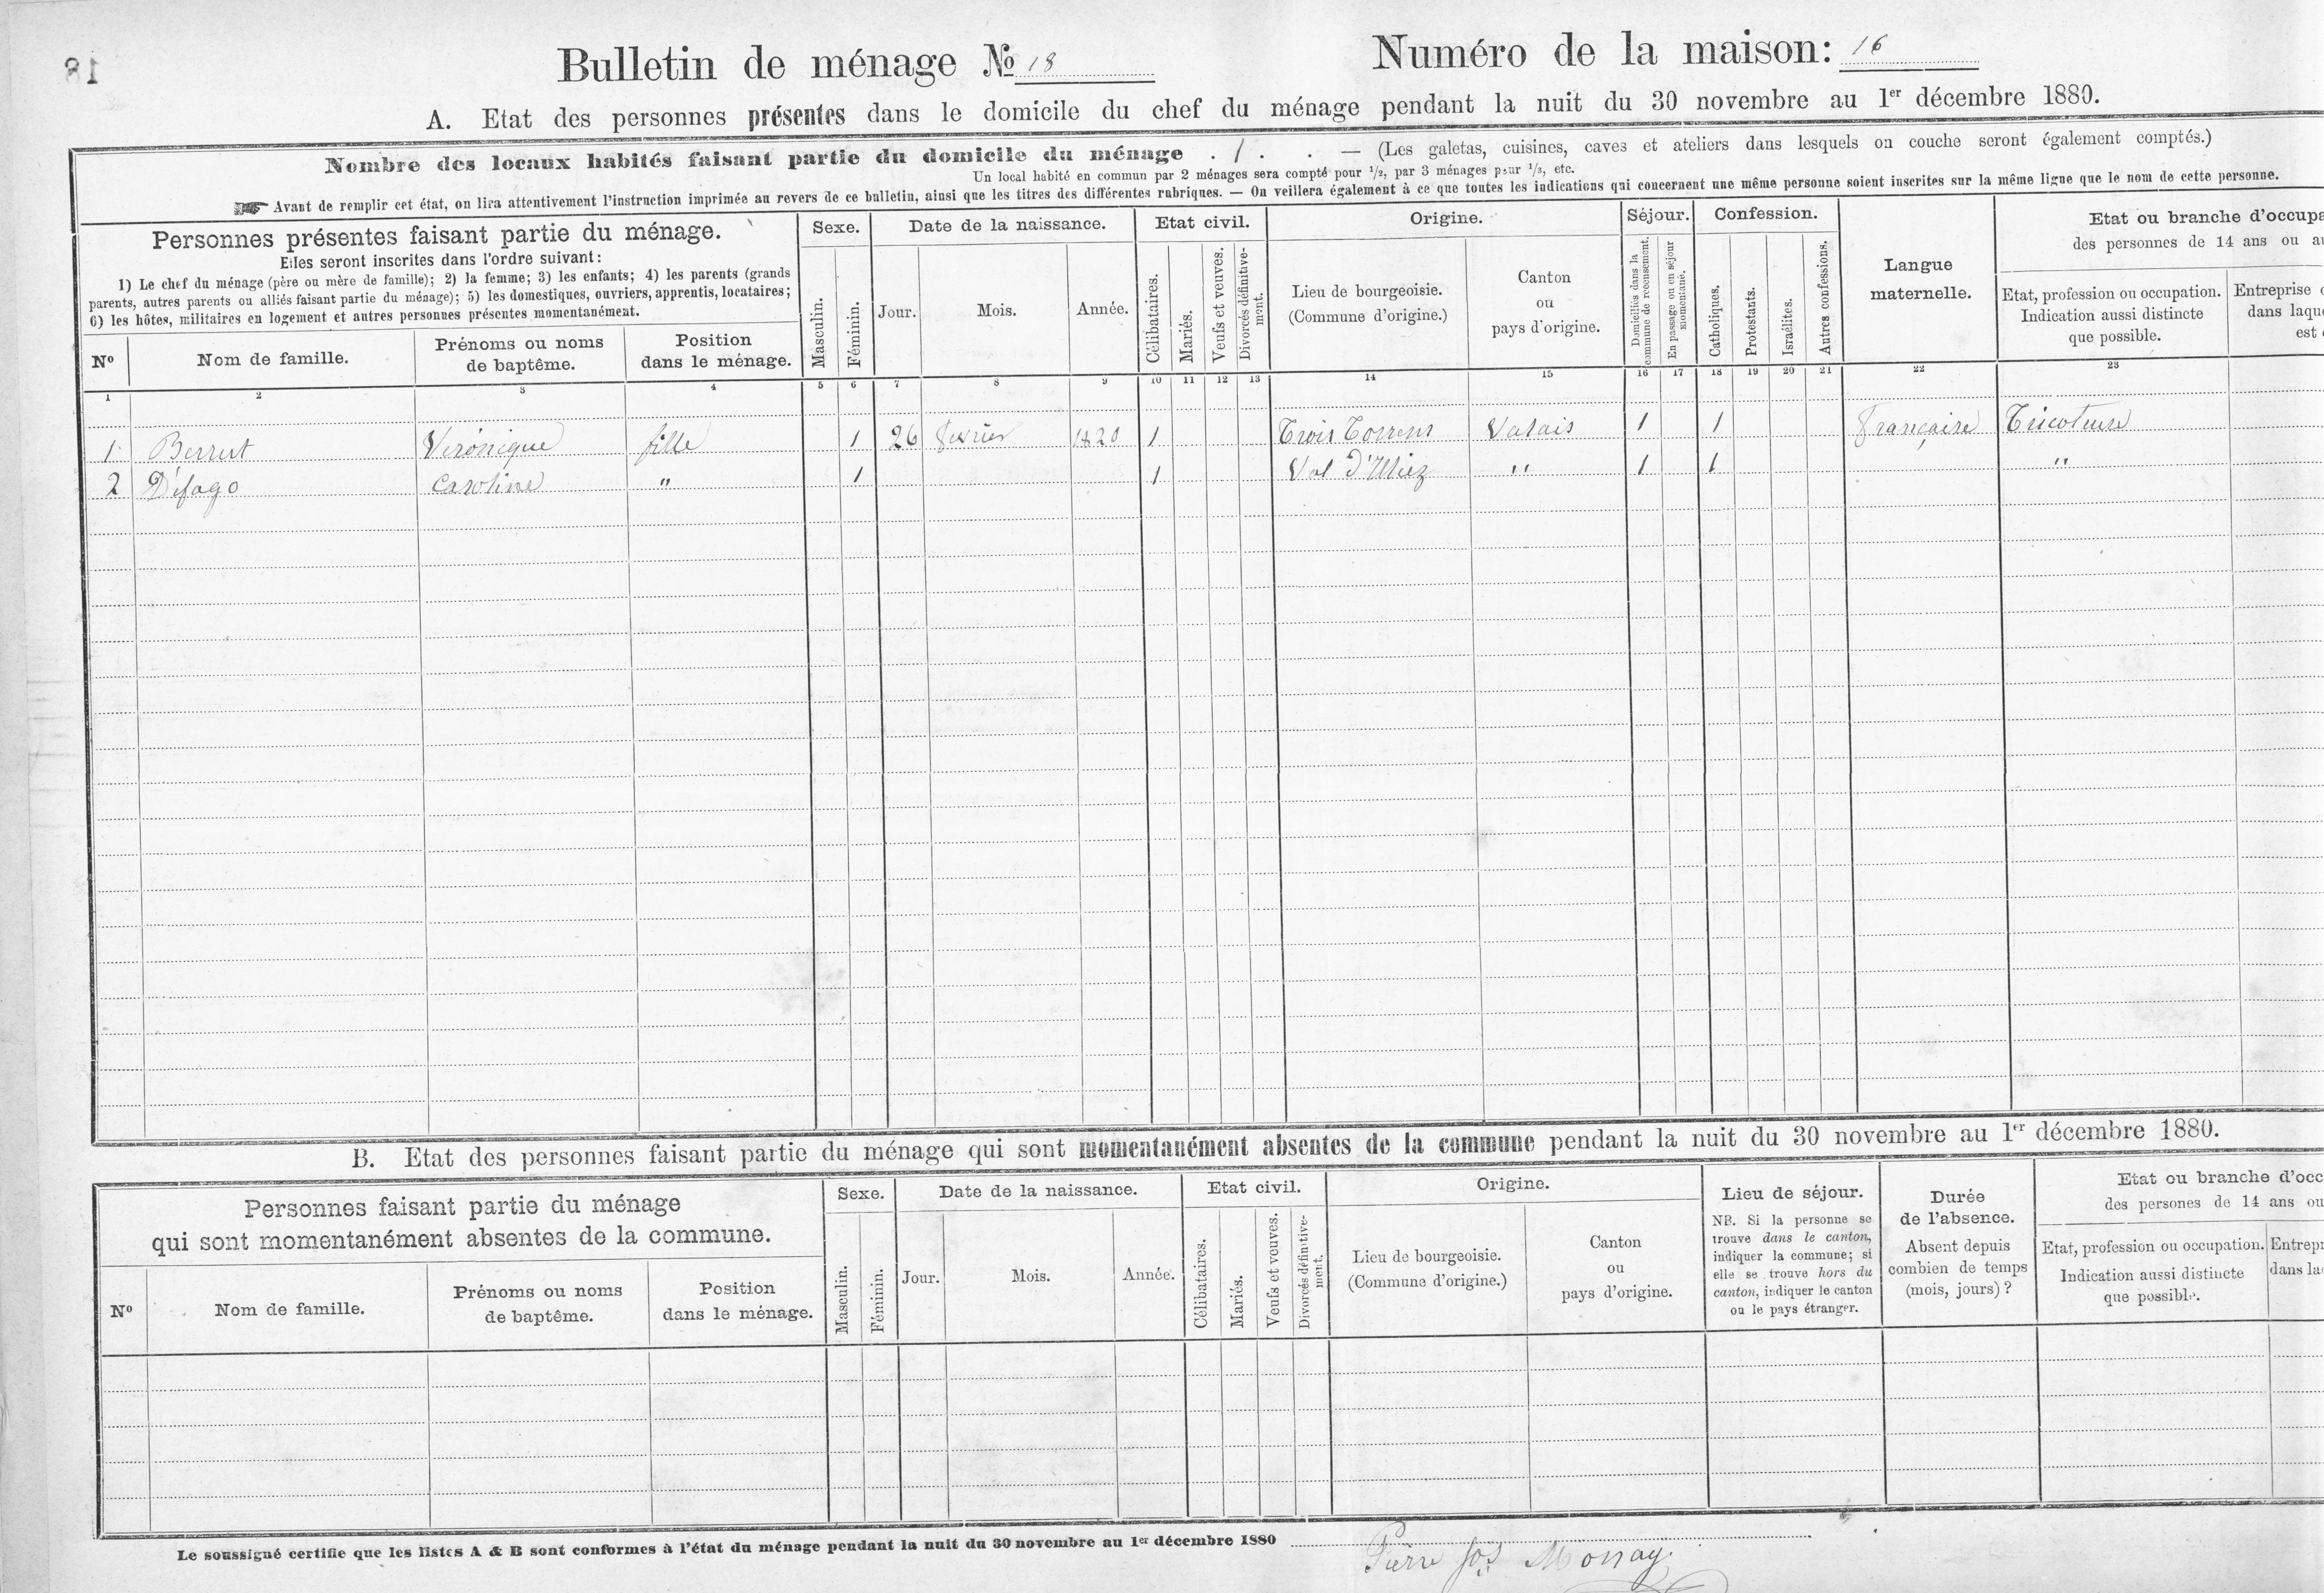 18
Bulletin de ménage No 18
Numéro de la maison: 16
A. Etat des personnes présentes dans le domicile du chef du ménage pendant la nuit du 30 novembre au 1er décembre 1880.
Nombre des locaux habités faisant partie du domicile du ménage . 1 . . — (Les galetas, cuisines, caves et ateliers dans lesquels on couche seront également comptés.)
Un local habité en commun par 2 ménages sera compté pour 1/2, par 3 ménages pour 1/3, etc.
Avant de remplir cet état, on lira attentivement l'instruction imprimée au revers de ce bulletin, ainsi que les titres des différentes rubriques. — On veillera également à ce que toutes les indications qui concernent une même personne soient inscrites sur la même ligne que le nom de cette personne.
Personnes présentes faisant partie du ménage.
Elles seront inscrites dans l'ordre suivant:
1) Le chef du ménage (père ou mère de famille); 2) la femme; 3) les enfants; 4) les parents (grands
parents, autres parents ou alliés faisant partie du ménage); 5) les domestiques, ouvriers, apprentis, locataires;
6) les hôtes, militaires en logement et autres personnes présentes momentanément.
No
Nom de famille.
Prénoms ou noms
de baptême.
Position
dans le ménage.
Sexe.
Masculin.
Féminin.
Date de la naissance.
Jour.
Mois.
Année.
Etat civil.
Célibataires.
Mariés.
Veufs et veuves.
Divorcés définitive-
ment.
Origine.
Lieu de bourgeoisie.
(Commune d'origine.)
Canton
ou
pays d'origine.
Séjour.
Domiciliés dans la
commune de recensement.
En passage ou en séjour
momentané.
Confession.
Catholiques.
Protestants.
Israélites.
Autres confessions.
Langue
maternelle.
Etat ou branche d'occupa
des personnes de 14 ans ou au
Etat, profession ou occupation.
Indication aussi distincte
que possible.
Entreprise
dans laqu
est
1 2 3 4 5 6 7 8 9 10 11 12 13 14 15 16 17 18 19 20 21 22 23
1 Berrut Véronique fille 1 26 fevrier 1820 1 Trois Torrens Valais 1 1 Française Tricoteuse
2 Défago Caroline " 1 1 Val d'Illiez " 1 1 "
B. Etat des personnes faisant partie du ménage qui sont momentanément absentes de la commune pendant la nuit du 30 novembre au 1er décembre 1880.
Personnes faisant partie du ménage
qui sont momentanément absentes de la commune.
No
Nom de famille.
Prénoms ou noms
de baptême.
Position
dans le ménage.
Sexe.
Masculin.
Féminin.
Date de la naissance.
Jour.
Mois.
Année.
Etat civil.
Célibataires.
Mariés.
Veufs et veuves.
Divorcés définitive-
ment.
Origine.
Lieu de bourgeoisie.
(Commune d'origine.)
Canton
ou
pays d'origine.
Lieu de séjour.
NB. Si la personne se
trouve dans le canton,
indiquer la commune; si
elle se trouve hors du
canton, indiquer le canton
ou le pays étranger.
Durée
de l'absence.
Absent depuis
combien de temps
(mois, jours)?
Etat ou branche d'occ
des persones de 14 ans ou
Etat, profession ou occupation.
Indication aussi distincte
que possible.
Entrepr
dans la
Le soussigné certifie que les listes A & B sont conformes à l'état du ménage pendant la nuit du 30 novembre au 1er décembre 1880
Pierre Jos Monay